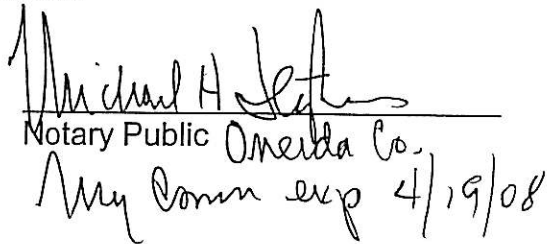 Michael H
Notary Public Oneida Co.
My Comm exp 4/19/08